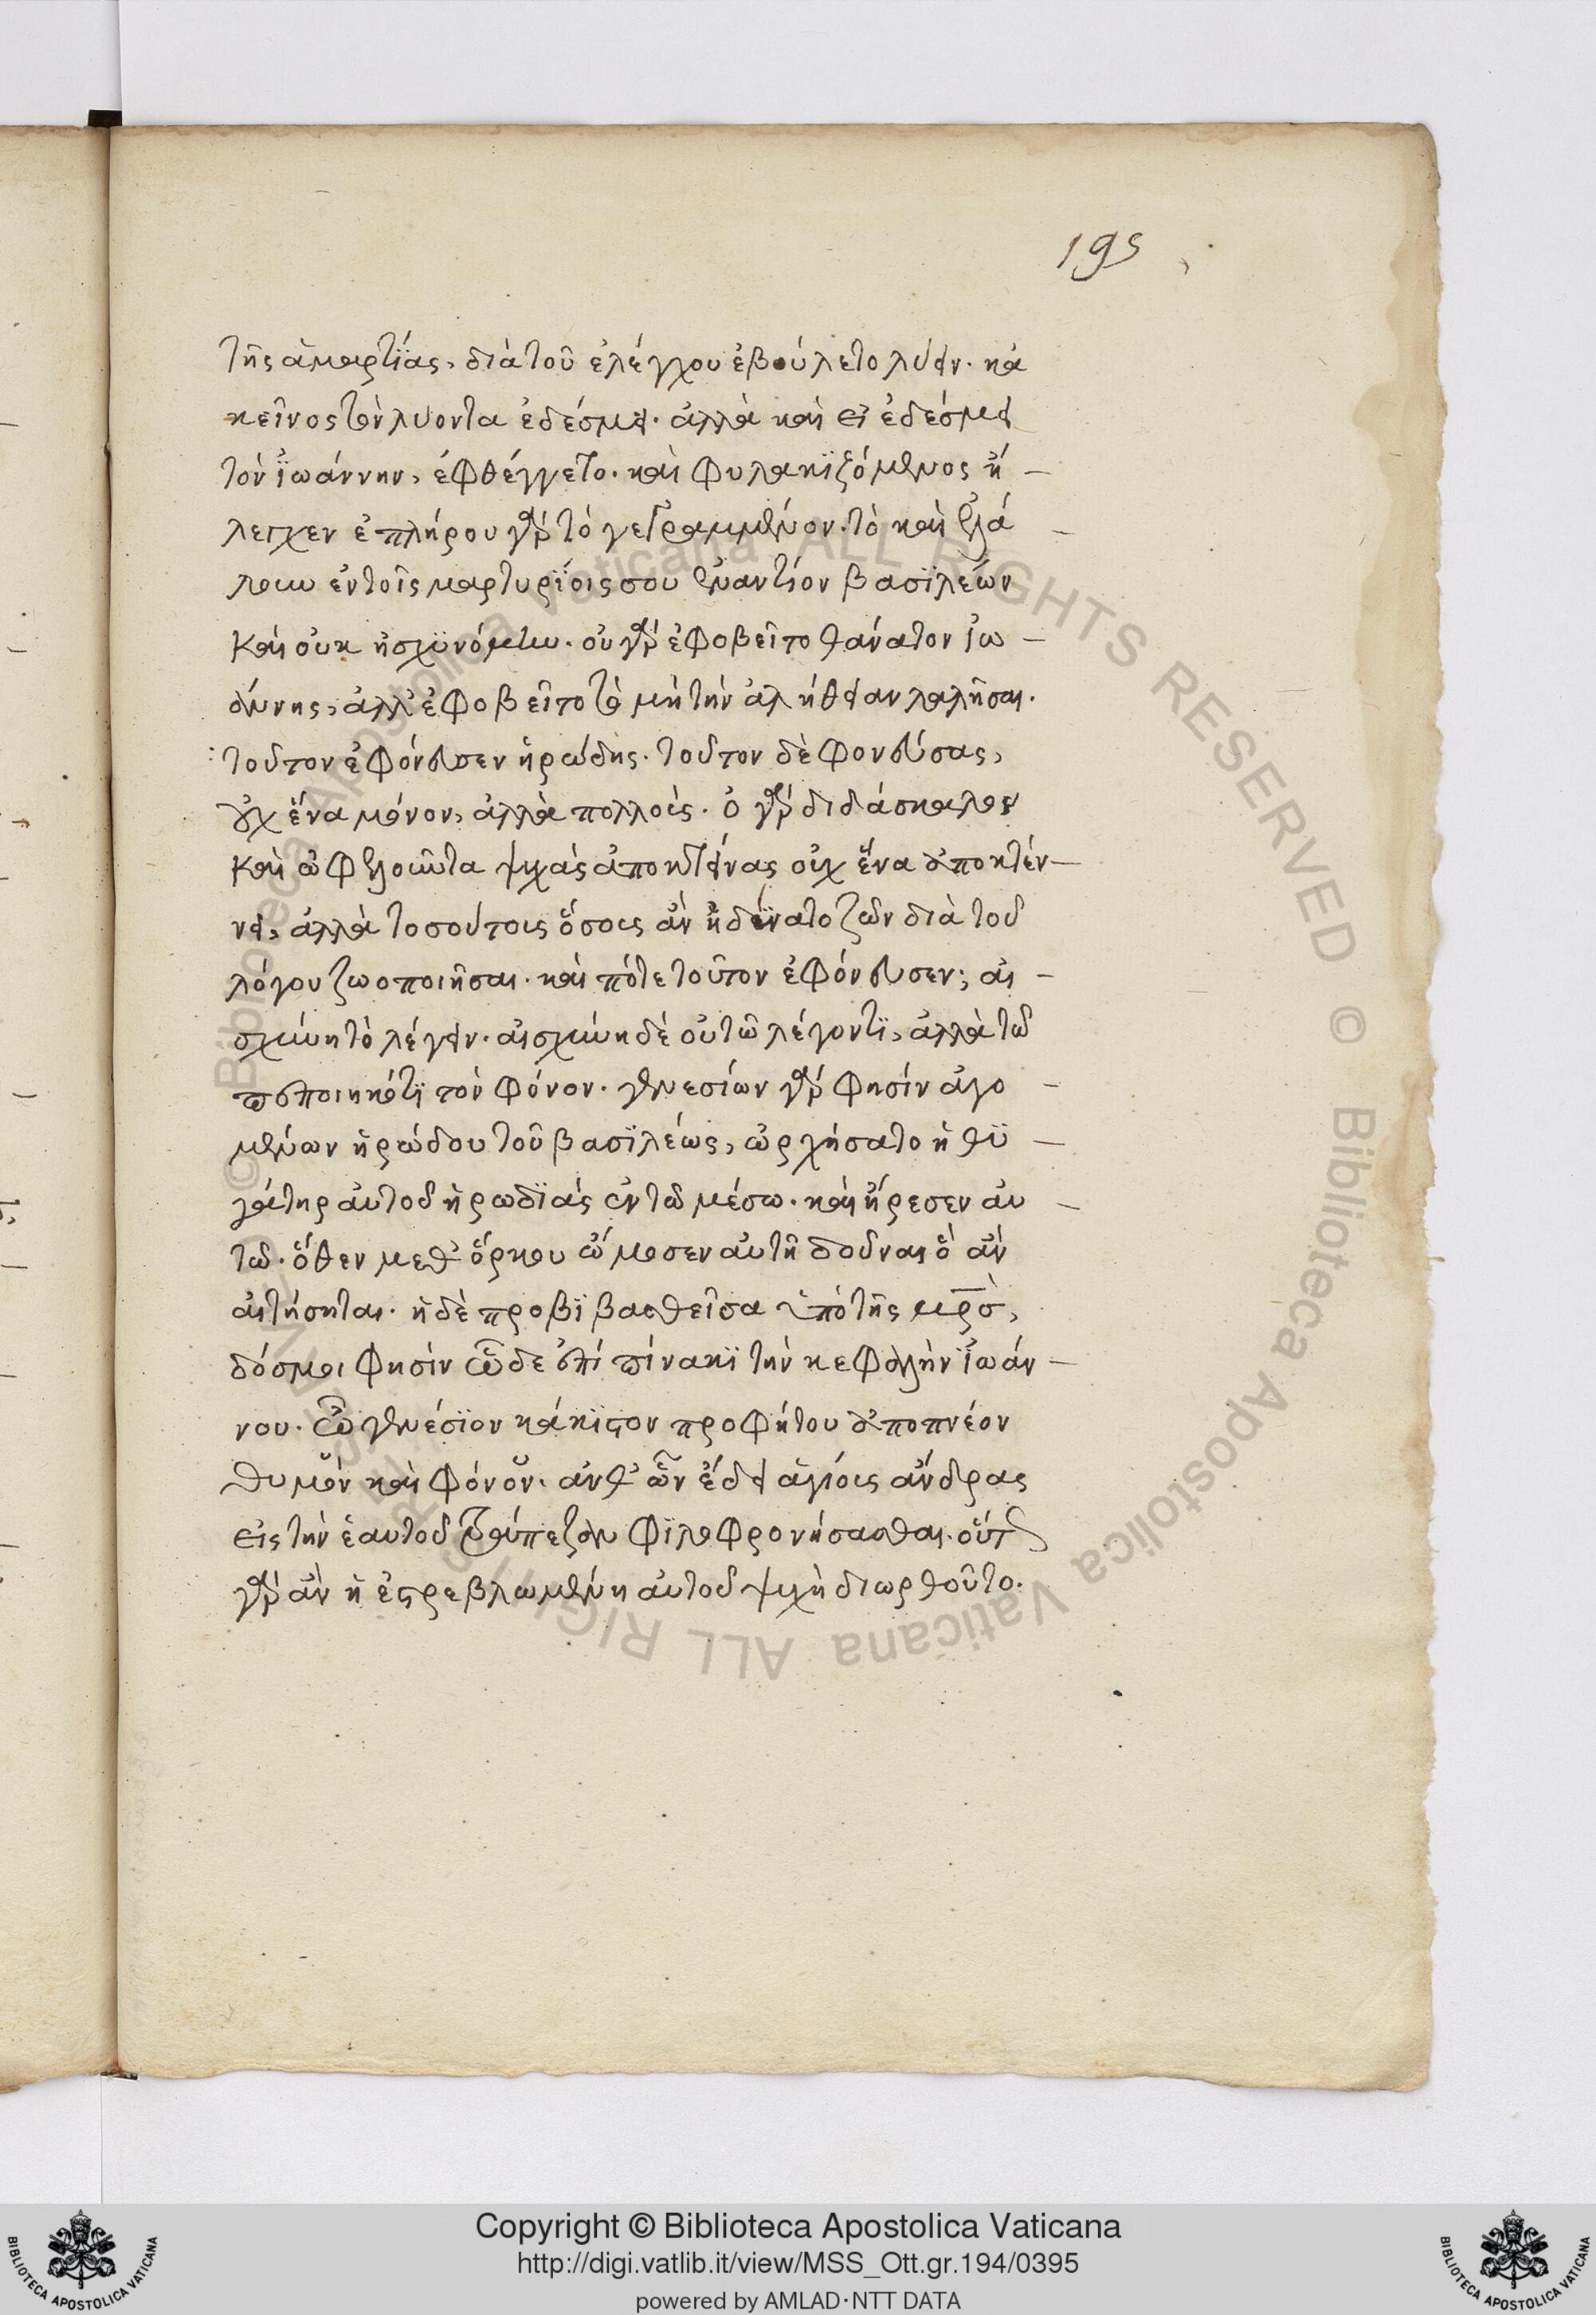 195
τῆς ἁμαρτίας, διὰ τοῦ ἐλέγχου ἐβούλετο λύειν. κἀ
κεῖνος τὸν λύοντα ἐδέσμει. ἀλλὰ καὶ εἰ ἐδέσμει
τὸν ἰωάννην, ἐφθέγγετο. καὶ φυλακιζόμενος ἤ
λεγχεν ἐπλήρου γὰρ τὸ γεγραμμένον. τὸ καὶ ἐλά
λουν ἐν τοῖς μαρτυρίοις σου ἐναντίον βασιλέων
καὶ οὐκ ἠσχυνόμην. οὐ γὰρ ἐφοβεῖτο θάνατον ἰω
άννης, ἀλλ' ἐφοβεῖτο τὸ μὴ τὴν ἀλήθειαν λαλῆσαι.
τοῦτον ἐφόνευσεν ἡρώδης. τοῦτον δὲ φονεύσας,
οὐχ ἕνα μόνον, ἀλλὰ πολλούς. ὁ γὰρ διδάσκαλον
καὶ ὠφελοῦντα ψυχὰς ἀποκτείνας οὐχ ἕνα ἀποκτέν
νει, ἀλλὰ τοσούτους ὅσους ἂν ἠδύνατο ζῶν διὰ τοῦ
λόγου ζωοποιῆσαι. καὶ πότε τοῦτον ἐφόνευσεν; αἰ
σχύνη τὸ λέγειν. αἰσχύνη δὲ οὐ τῶ λέγοντι, ἀλλὰ τῶ
πεποιηκότι τὸν φόνον. γενεσίων γὰρ φησὶν ἀγο
μένων ἡρώδου τοῦ βασιλέως, ὠρχήσατο ἡ θυ
γάτηρ αὐτοῦ ἡρωδιάς ἐν τῶ μέσω. καὶ ἤρεσεν αὐ
τῶ. ὅθεν μεθ' ὅρκου ὤμοσεν αὐτῆ δοῦναι ὃ ἂν
αἰτήσηται. ἡ δὲ προβιβασθεῖσα ὑπὸ τῆς μρς,
δός μοι φησὶν ὧδε ἐπὶ πίνακι τὴν κεφαλὴν ἰωάν
νου. ὢ γενέσιον κάκιστον προφήτου ἀποπνέον
θυμὸν καὶ φόνον. ἀνθ' ὧν ἔδει ἁγίους ἄνδρας
εἰς τὴν ἑαυτοῦ τράπεζαν φιλοφρονήσασθαι. οὕτω
γὰρ ἂν ἡ ἐστρεβλωμένη αὐτοῦ ψυχὴ διωρθοῦτο.
© Biblioteca Apostolica Vaticana ALL RIGHTS RESERVED © Biblioteca Apostolica Vaticana ALL RIGHTS RESERVED
Copyright © Biblioteca Apostolica Vaticana
http://digi.vatlib.it/view/MSS_Ott.gr.194/0395
powered by AMLAD·NTT DATA
BIBLIOTECA APOSTOLICA VATICANA
BIBLIOTECA APOSTOLICA VATICANA